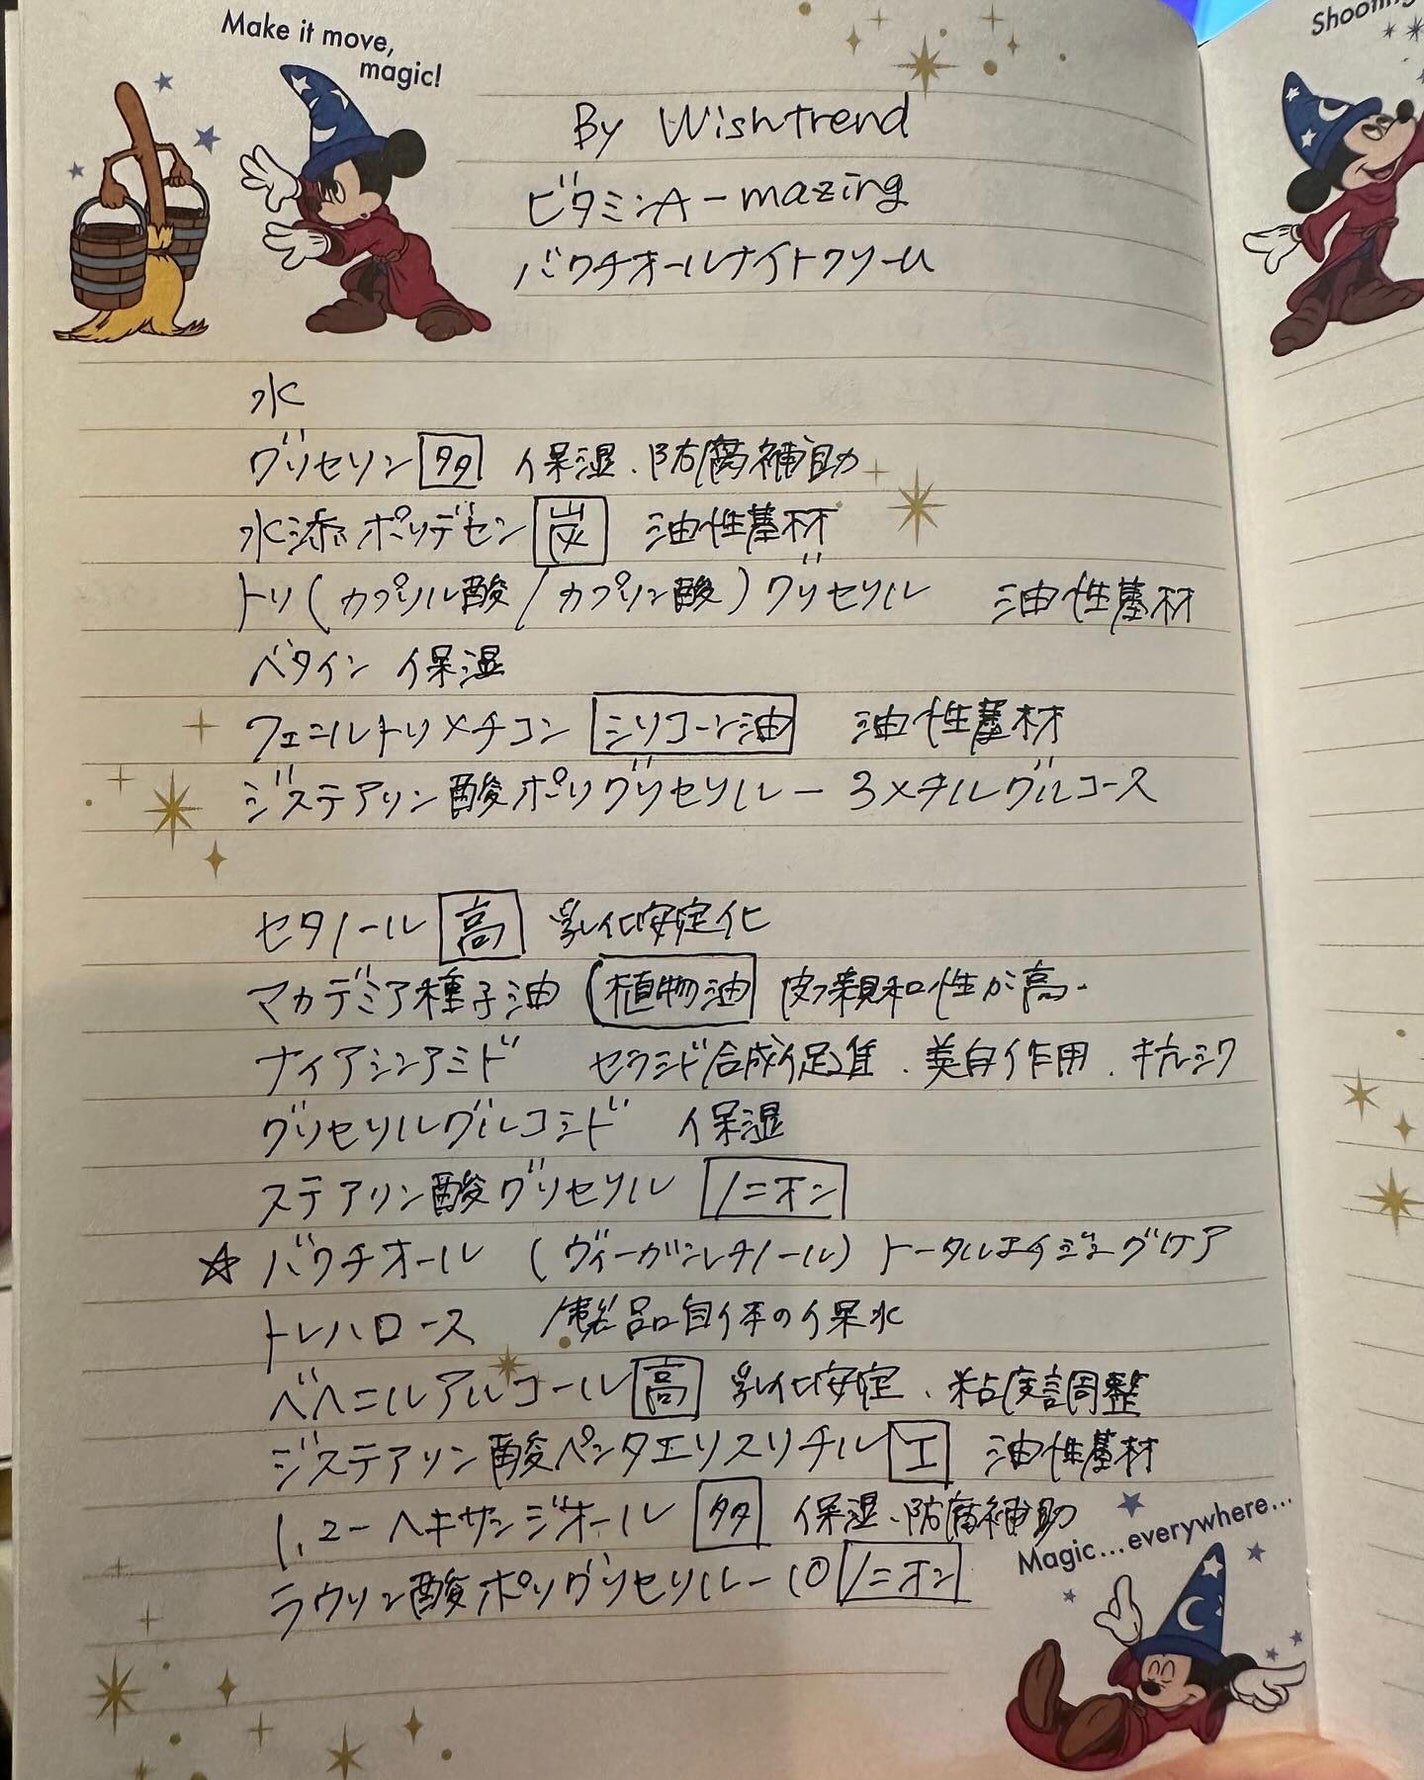 Make it move,
magic!
Shooting
By Wishtrend
ビタミンA-mazing
バクチオールナイトクリーム
水
グリセリン 多 保湿、防腐補助
水添ポリデセン 炭 油性基材
トリ(カプリル酸/カプリン酸)グリセリル 油性基材
ベタイン 保湿
フェニルトリメチコン シリコーン油 油性基材
ジステアリン酸ポリグリセリル-3メチルグルコース
セタノール 高 乳化安定化
マカデミア種子油 植物油 皮フ親和性が高
ナイアシンアミド セラミド合成促進、美白作用、抗シワ
グリセリルグルコシド 保湿
ステアリン酸グリセリル ノニオン
☆ バクチオール (ヴィーガンレチノール) トータルエイジングケア
トレハロース 製品自体の保水
ベヘニルアルコール 高 乳化安定、粘度調整
ジステアリン酸ペンタエリスリチル エ 油性基材
1,2-ヘキサンジオール 多 保湿、防腐補助
ラウリン酸ポリグリセリル-10 ノニオン
Magic...everywhere...